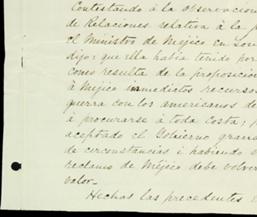 Contestando á la observacion
de Relaciones relativa á la
el Ministro de Méjico en
dijo: que ella habia tenido por
como resulta de la proposicion
á Méjico inmediatos recursos
guerra con los americanos de
á procurarse á toda costa;
aceptado el Gobierno
de circunstancias i habiendo
reclamo de Méjico debe volver
valor_
Hechas las precedentes